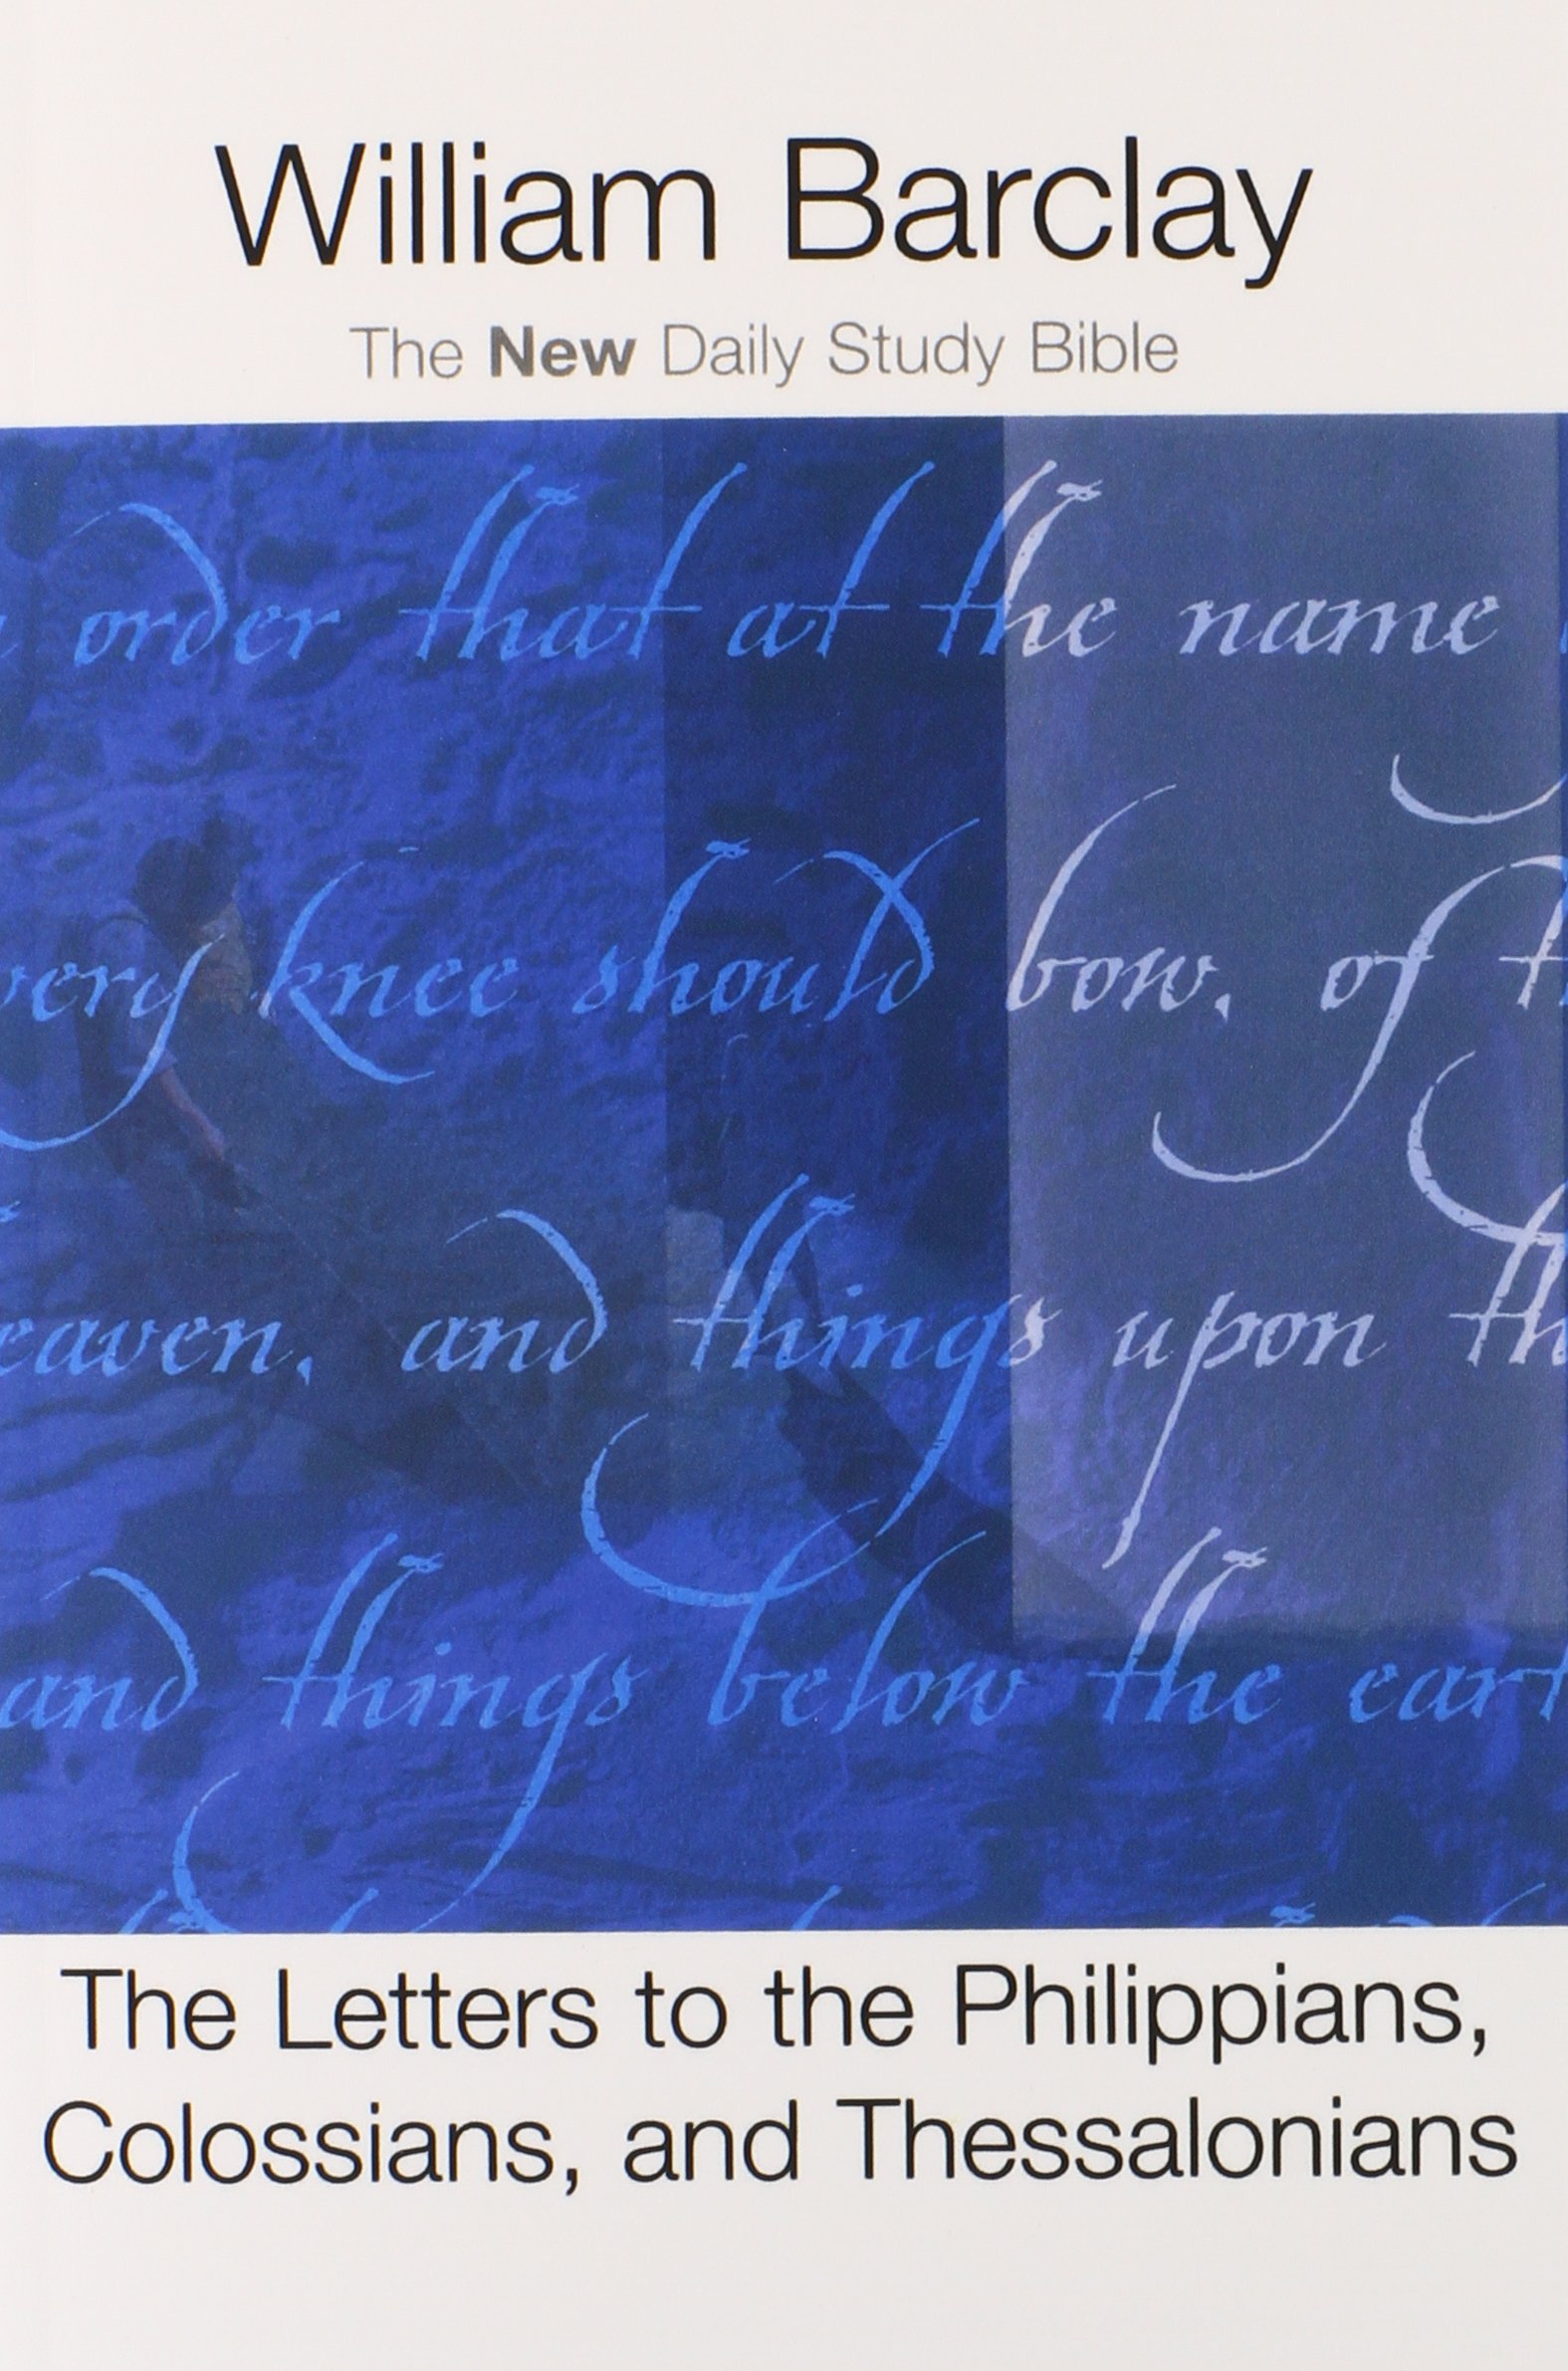 William Barclay
The New Daily Study Bible
order that at the name
very knee should bow, of th
eaven, and things upon th
and things below the eart
The Letters to the Philippians,
Colossians, and Thessalonians